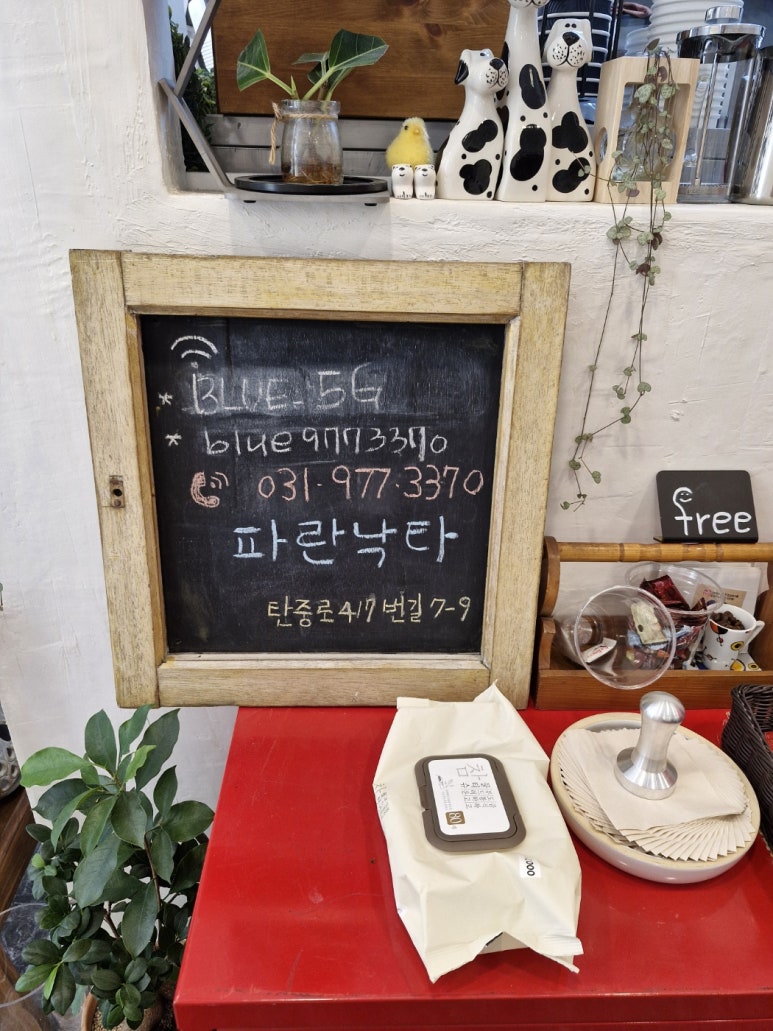 BLUE-5G
* blue9773370
031-977-3370
파란낙타
탄중로417번길 7-9
free
참
80
000